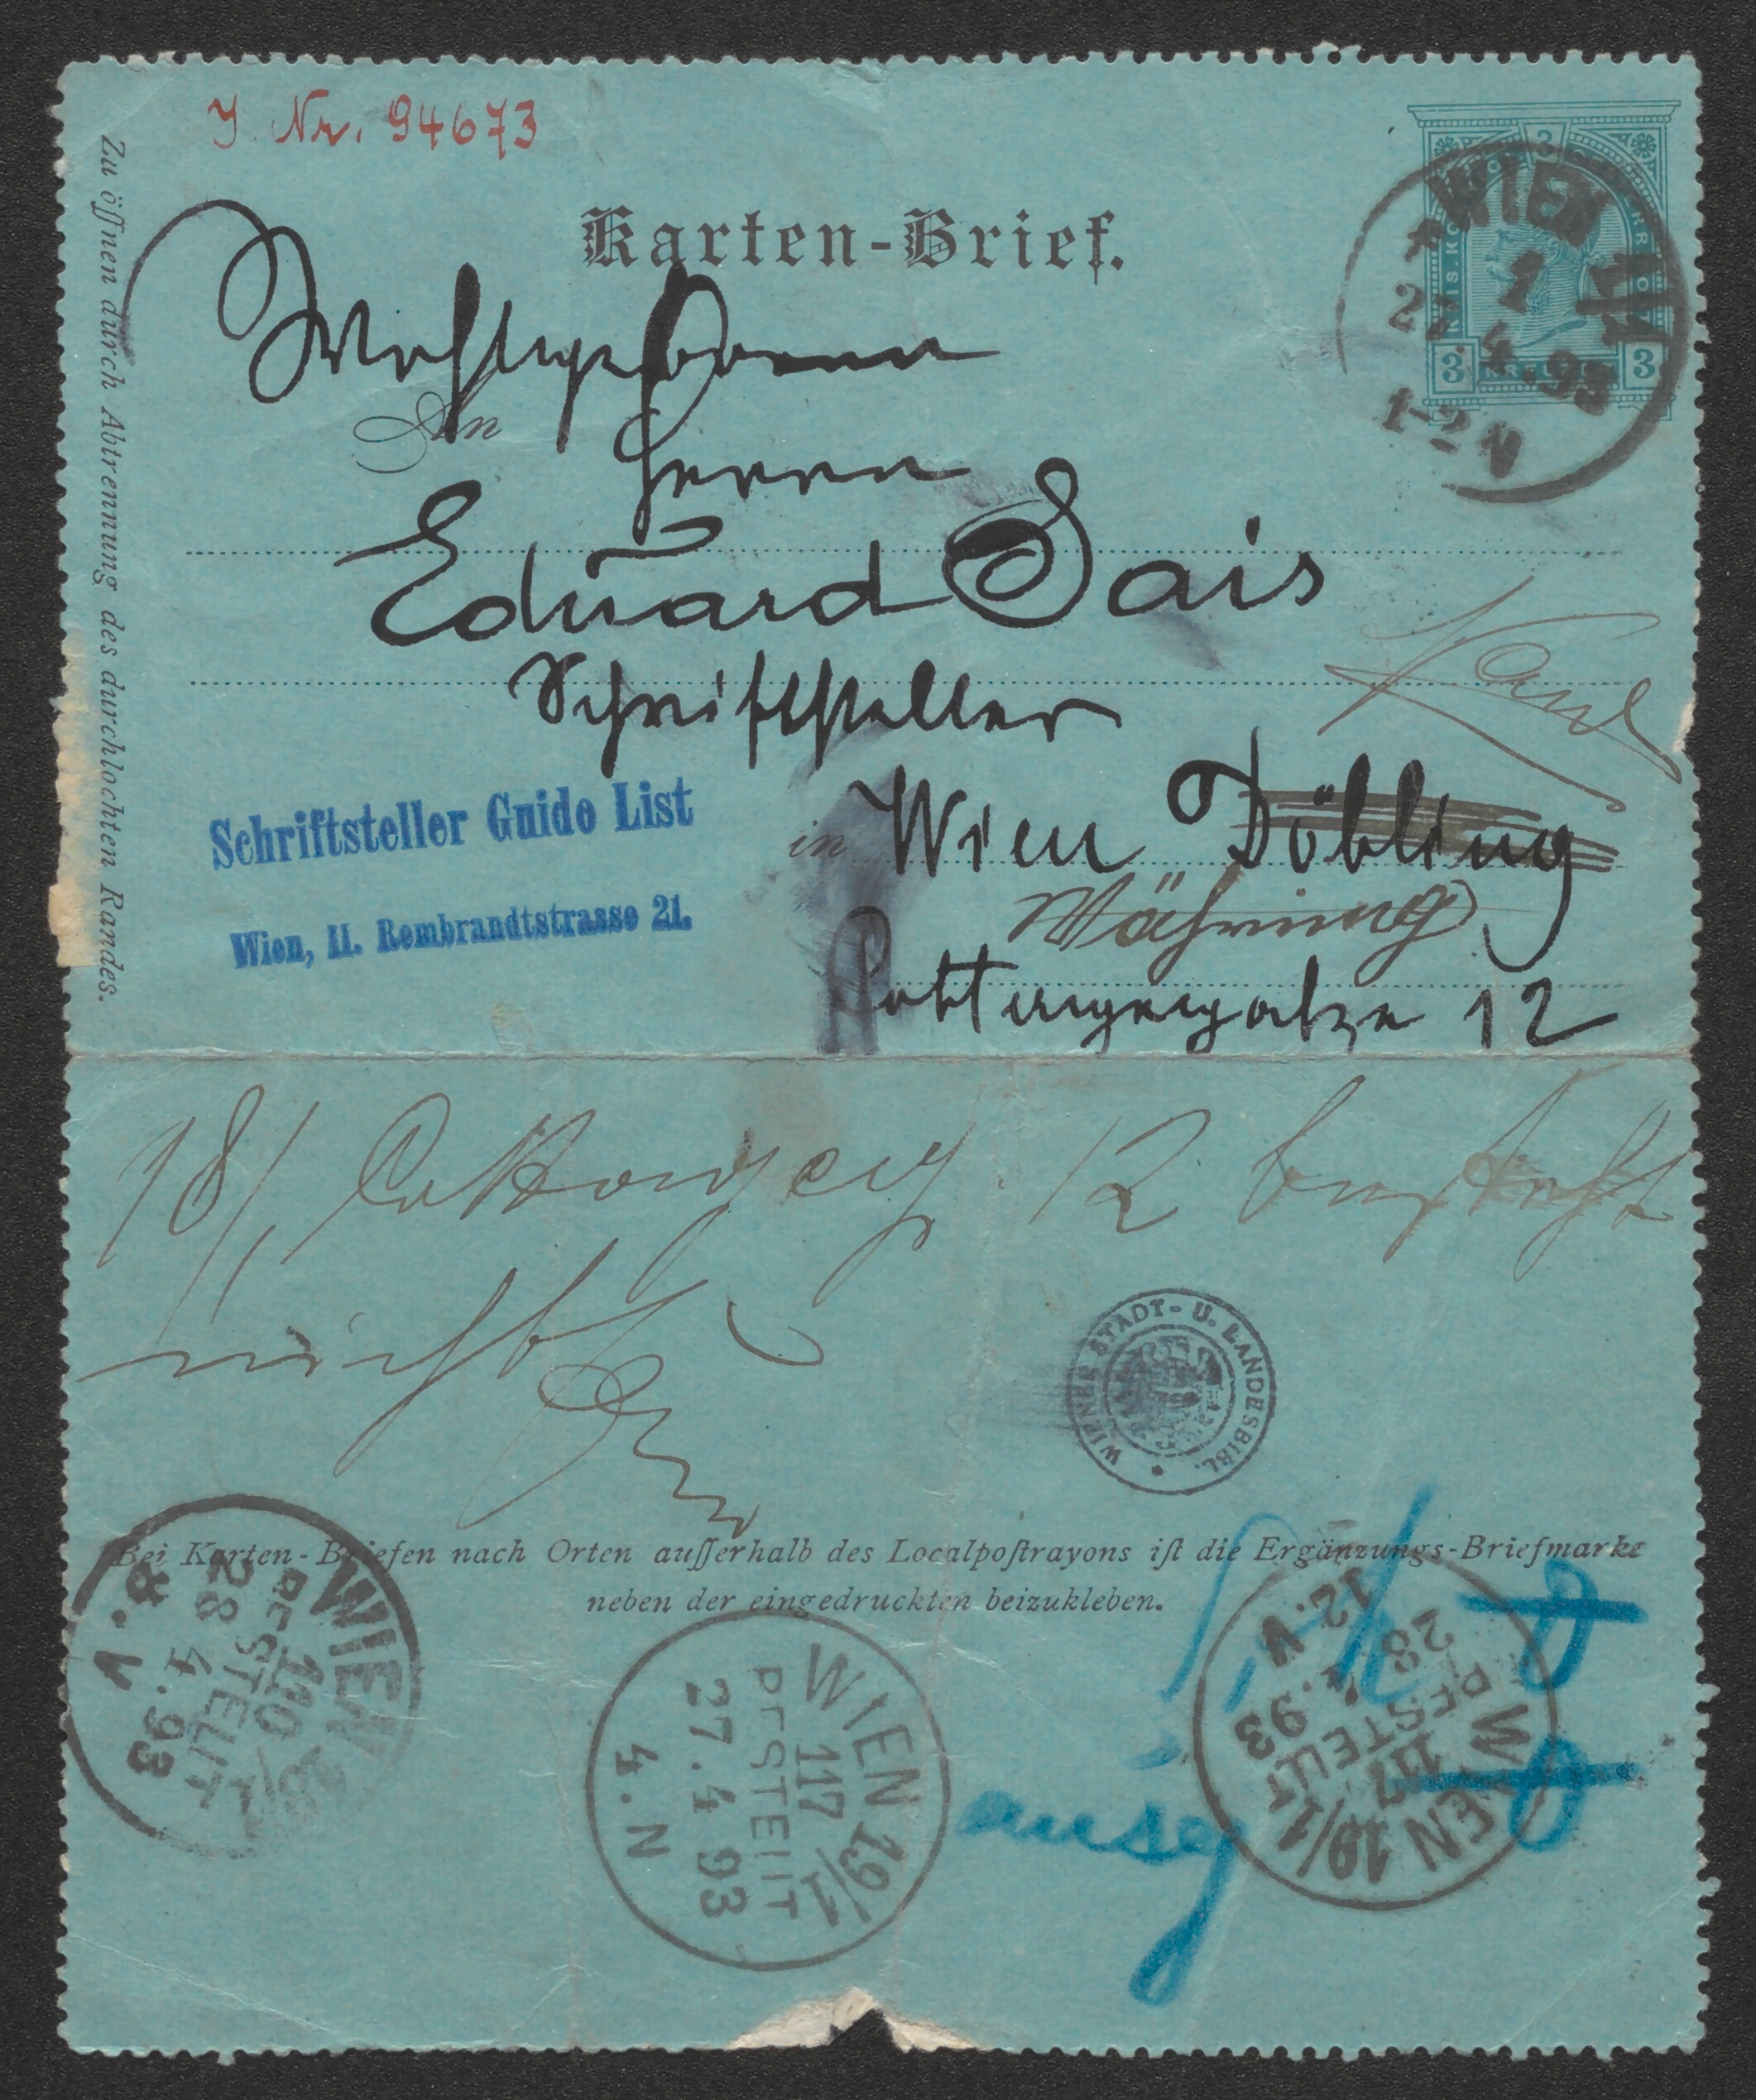 J. Nr. 94673
Karten-Brief.
Wohlgeboren
An
Herrn
Eduard Sais
Schriftsteller
in Wien Döbling
Währing
Cottagegasse 12
Schriftsteller Guido List
Wien, II. Rembrandtstrasse 21.
Zu öffnen durch Abtrennung des durchlochten Randes.
3
3 KREUZER 3
WIEN 1/1
1
27.4.93
1-2N
18/1 12
nicht
WIENER STADT- U. LANDESBIBL.
Bei Karten-Briefen nach Orten auſſerhalb des Localpoſtrayons iſt die Ergänzungs-Briefmarke
neben der eingedruckten beizukleben.
WIEN 18/1
110
BESTELLT
28 4.93
8.V
WIEN 19/1
117
BESTELLT
27.4 93
4.N
WIEN 19/1
117
BESTELLT
28 4.93
12.V